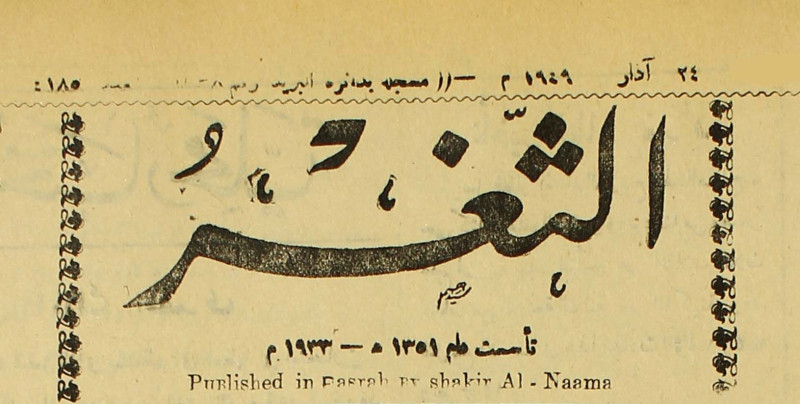 ٢٤ آذار ١٩٤٩ م — (( مسجلة بدائرة البريد رقم
الثغر
تأسست عام ١٣٥١ هـ — ١٩٣٣ م
Published in Basrah By shakir Al - Naama